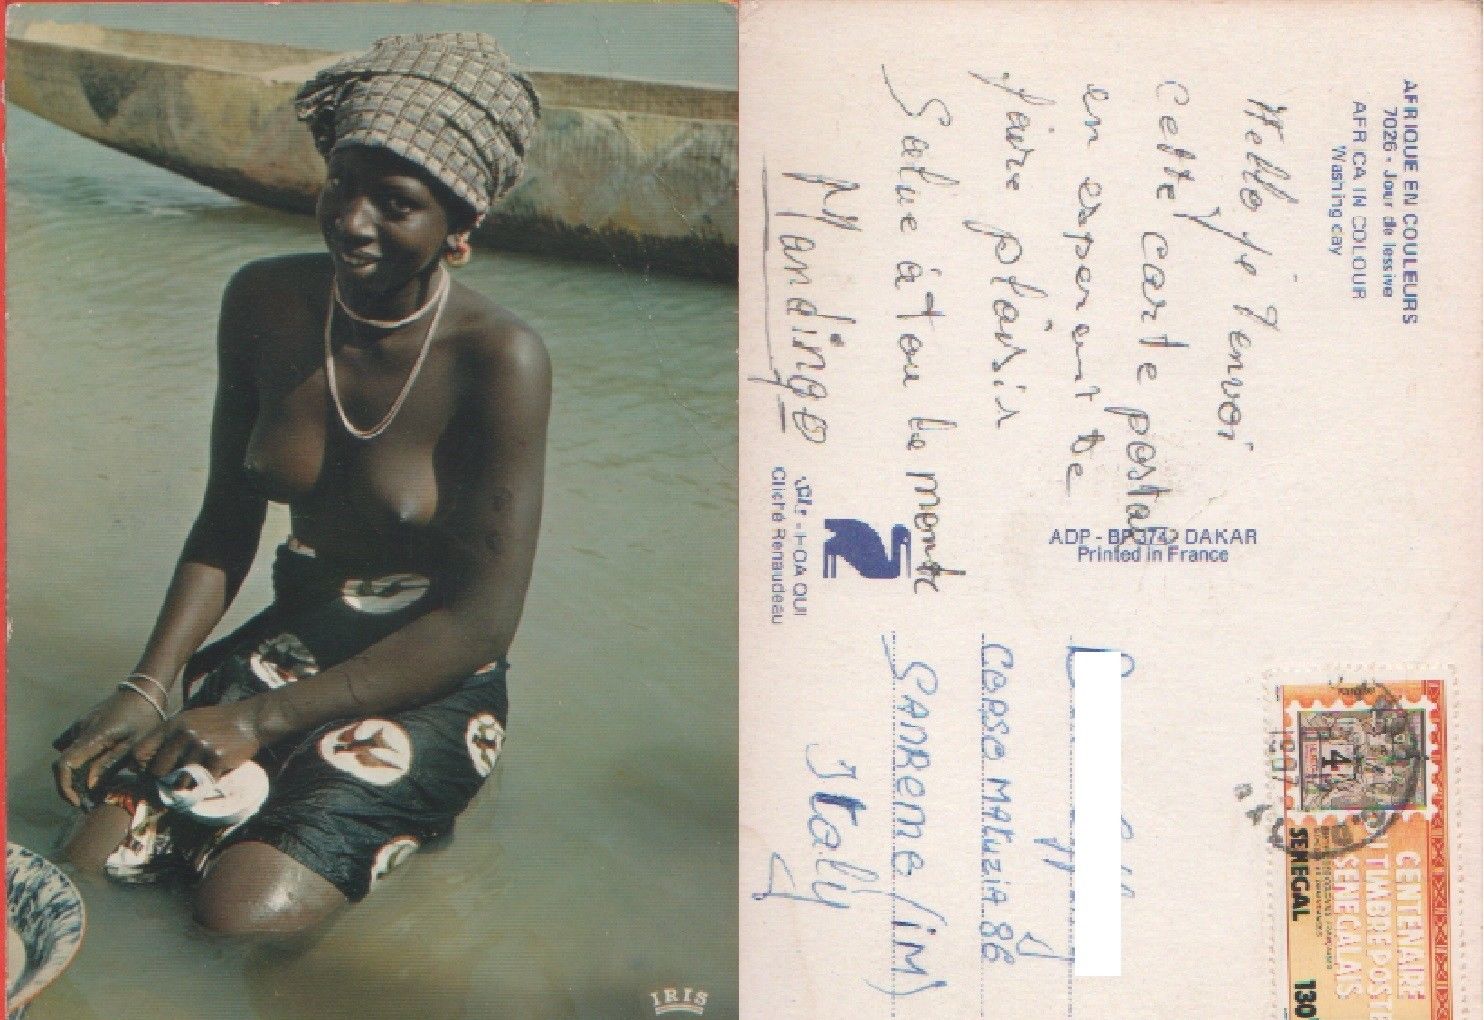 IRIS
AFRIQUE EN COULEURS
7026 - Jour de lessive
AFRICA IN COLOUR
Washing day
Hello je t'envoi
cette carte postale
en esperant te
faire plaisir
Salue à tou le monde
Mandingo
HOA QUI
Cliché Renaudeau
ADP - BP 3742 DAKAR
Printed in France
CORSO MAKUZIA 86
SANREMO (IM)
Italy
1987
4
CENTENAIRE
TIMBRE POSTE
SENEGALAIS
SENEGAL
130